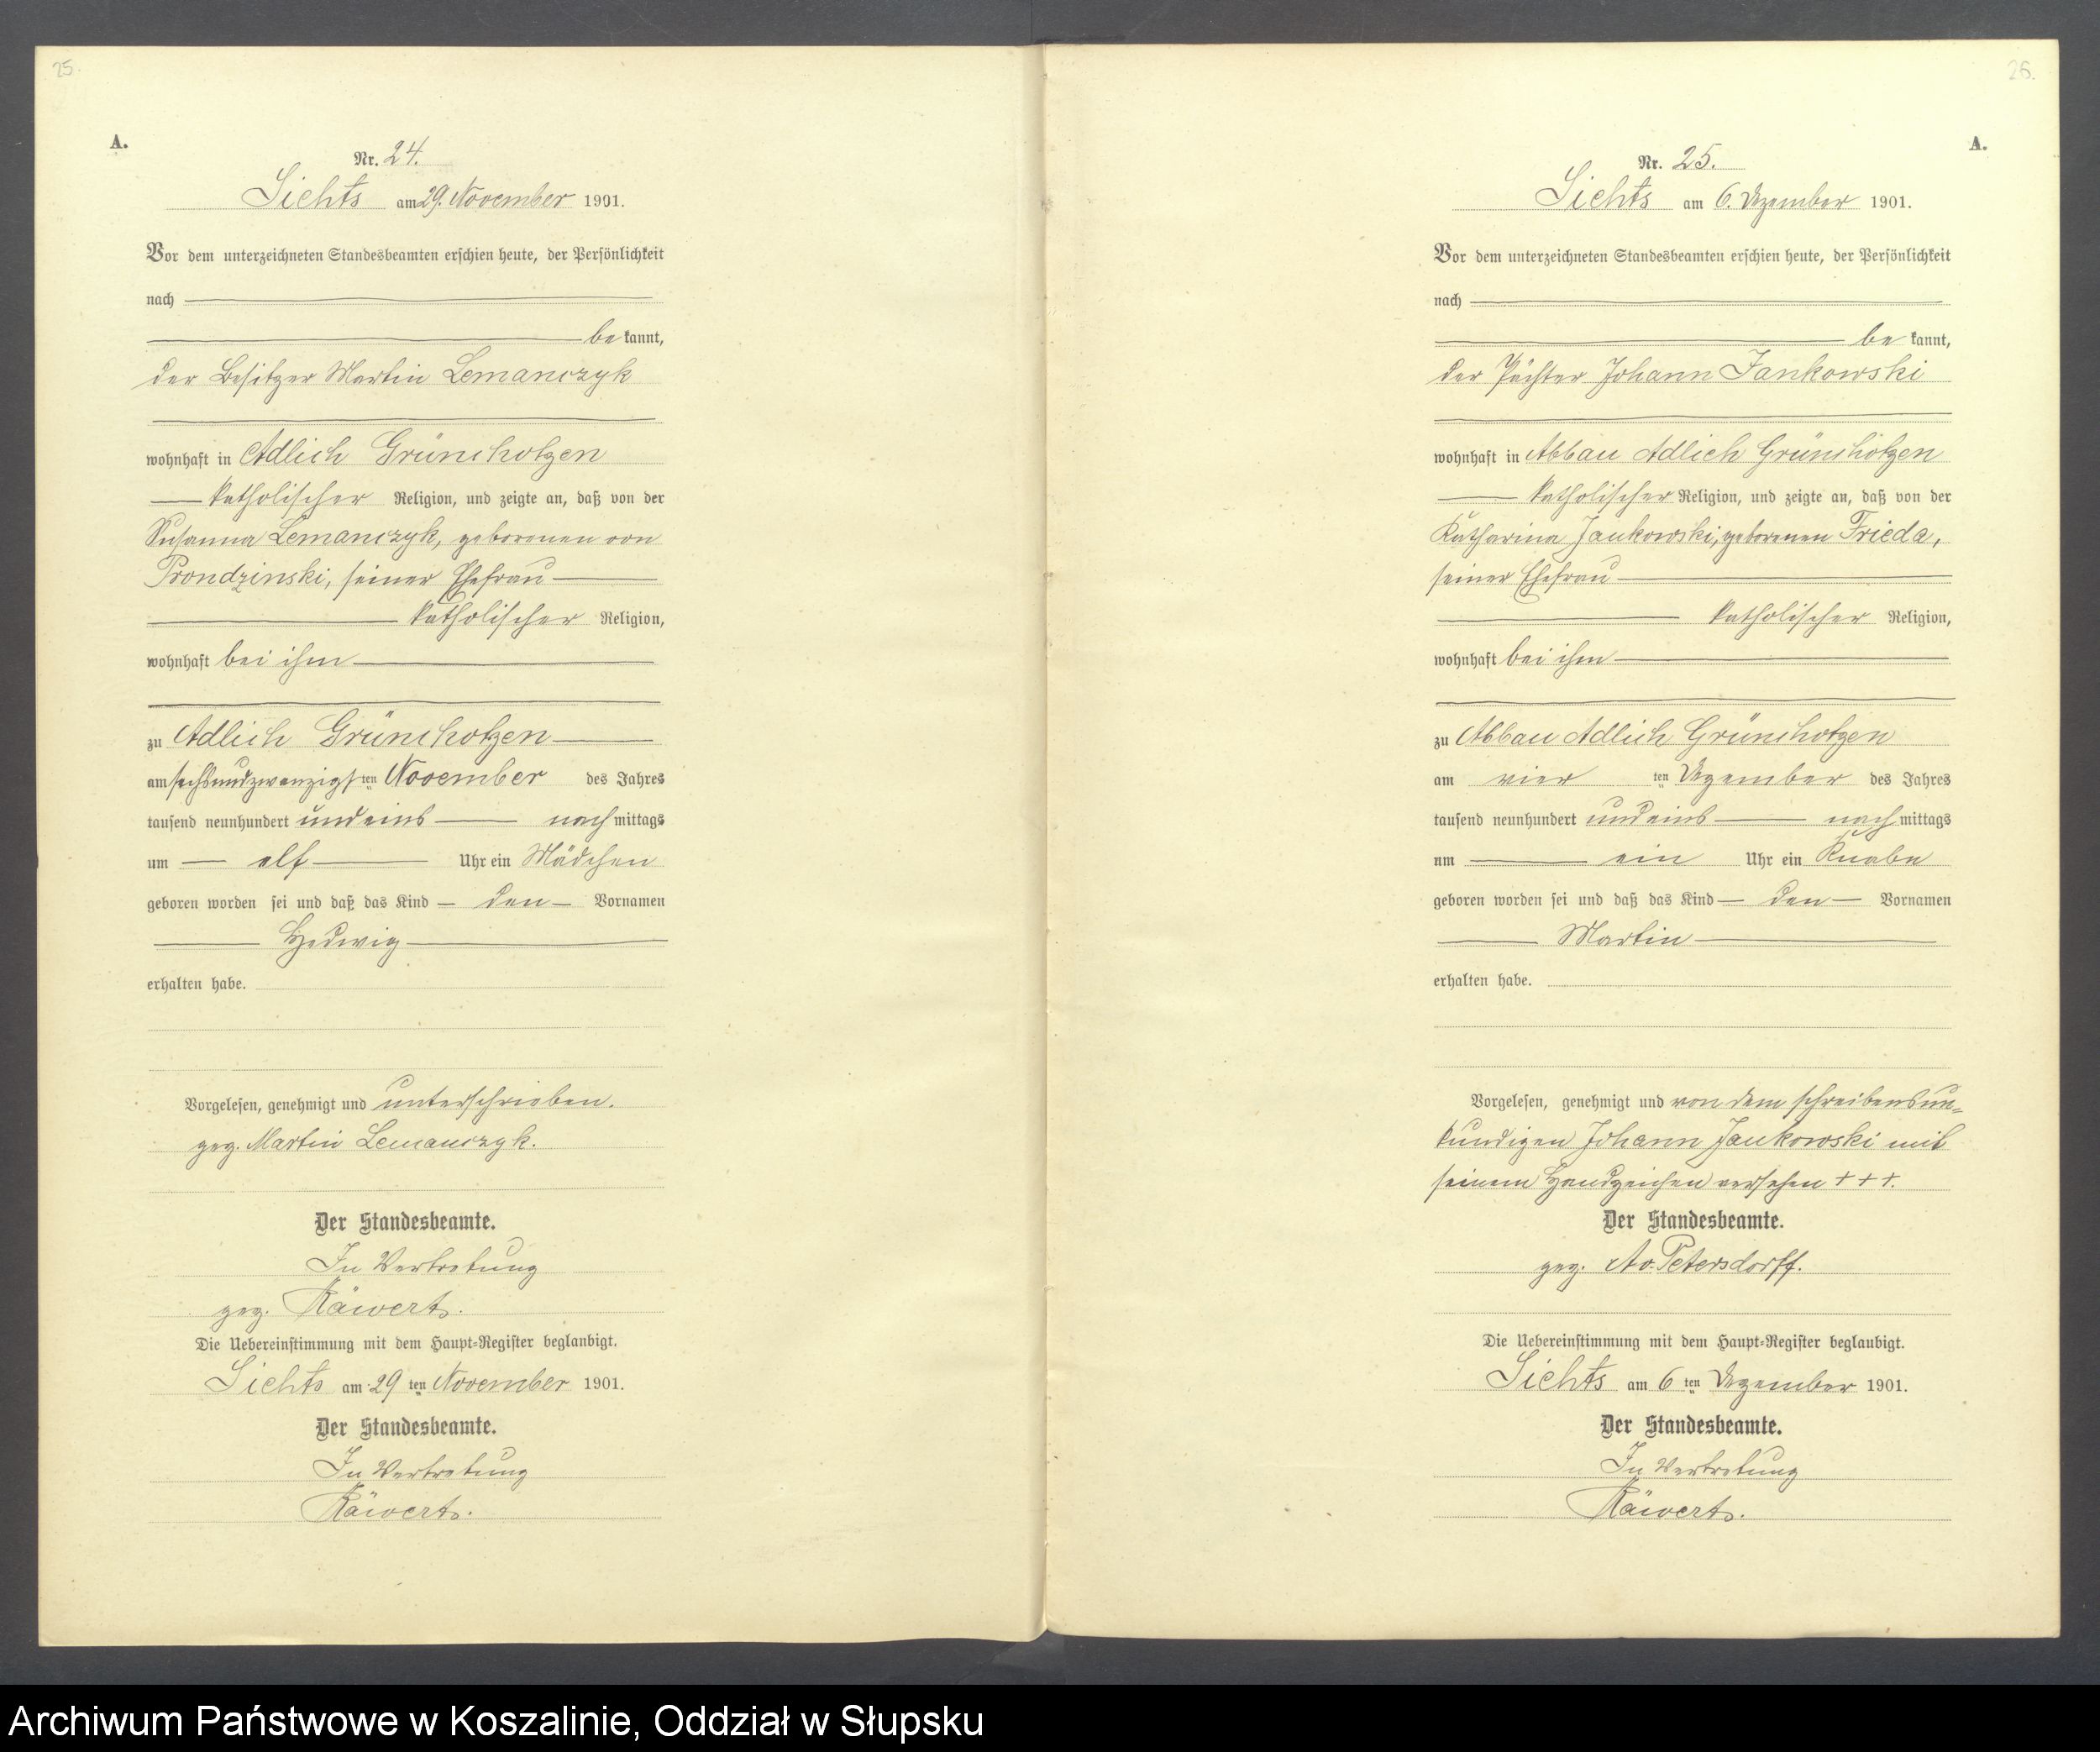 25.
A.
Nr. 24.
Lichts am 29. November 1901.
Vor dem unterzeichneten Standesbeamten erschien heute, der Persönlichkeit
nach
be kannt,
der Besitzer Martin Lemanczyk
wohnhaft in Adlich Grünchotzen
katholischer Religion, und zeigte an, daß von der
Susanna Lemanczyk, geborenen von
Prondzinski, seiner Ehefrau
katholischer Religion,
wohnhaft bei ihm
zu Adlich Grünchotzen
am sechsundzwanzigsten November des Jahres
tausend neunhundert und eins nach mittags
um elf Uhr ein Mädchen
geboren worden sei und daß das Kind den Vornamen
Hedwig
erhalten habe.
Vorgelesen, genehmigt und unterschrieben.
gez. Martin Lemanczyk.
Der Standesbeamte.
In Vertretung
gez. Käwert.
Die Uebereinstimmung mit dem Haupt-Register beglaubigt.
Lichts am 29 ten November 1901.
Der Standesbeamte.
In Vertretung
Käwert.
26.
A.
Nr. 25.
Lichts am 6. Dezember 1901.
Vor dem unterzeichneten Standesbeamten erschien heute, der Persönlichkeit
nach
be kannt,
der Pächter Johann Jankowski
wohnhaft in Abbau Adlich Grünchotzen
katholischer Religion, und zeigte an, daß von der
Katharina Jankowski, geborenen Frieda,
seiner Ehefrau
katholischer Religion,
wohnhaft bei ihm
zu Abbau Adlich Grünchotzen
am vier ten Dezember des Jahres
tausend neunhundert und eins nach mittags
um ein Uhr ein Knabe
geboren worden sei und daß das Kind den Vornamen
Martin
erhalten habe.
Vorgelesen, genehmigt und von dem schreibensun=
kundigen Johann Jankowski mit
seinem Handzeichen versehen + + +.
Der Standesbeamte.
gez. Av. Petersdorff.
Die Uebereinstimmung mit dem Haupt-Register beglaubigt.
Lichts am 6 ten Dezember 1901.
Der Standesbeamte.
In Vertretung
Käwert.
Archiwum Państwowe w Koszalinie, Oddział w Słupsku